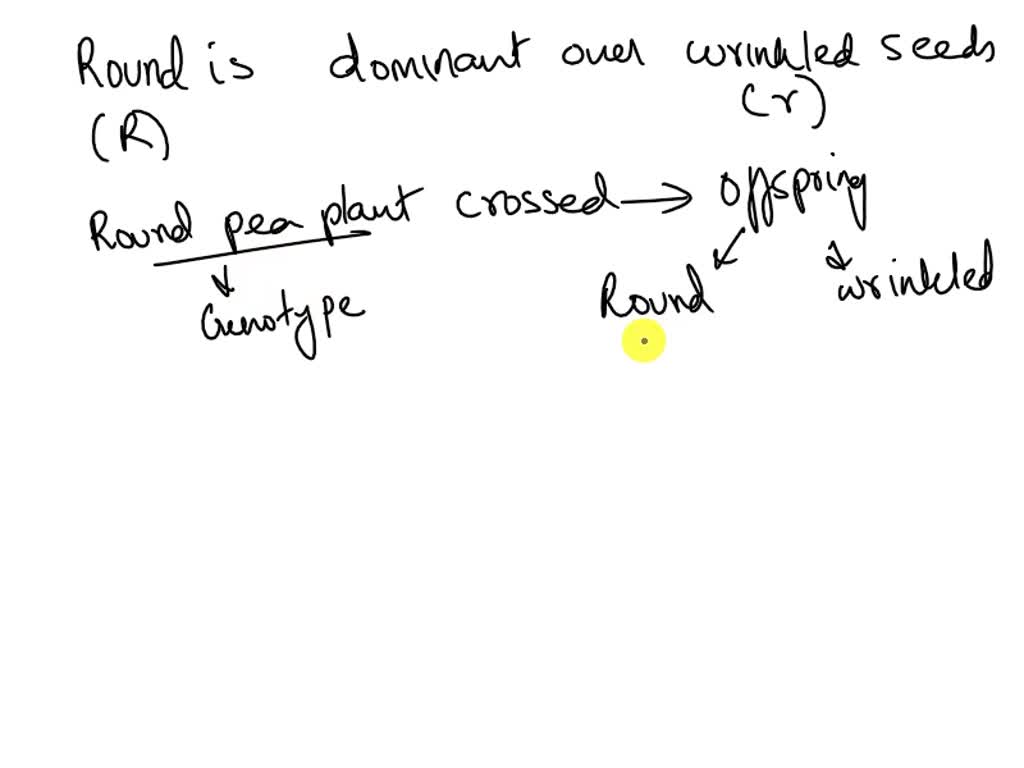 Round is dominant over wrinkled seeds
(R) (r)
Round pea plant crossed → Offspring
Genotype Round wrinkled